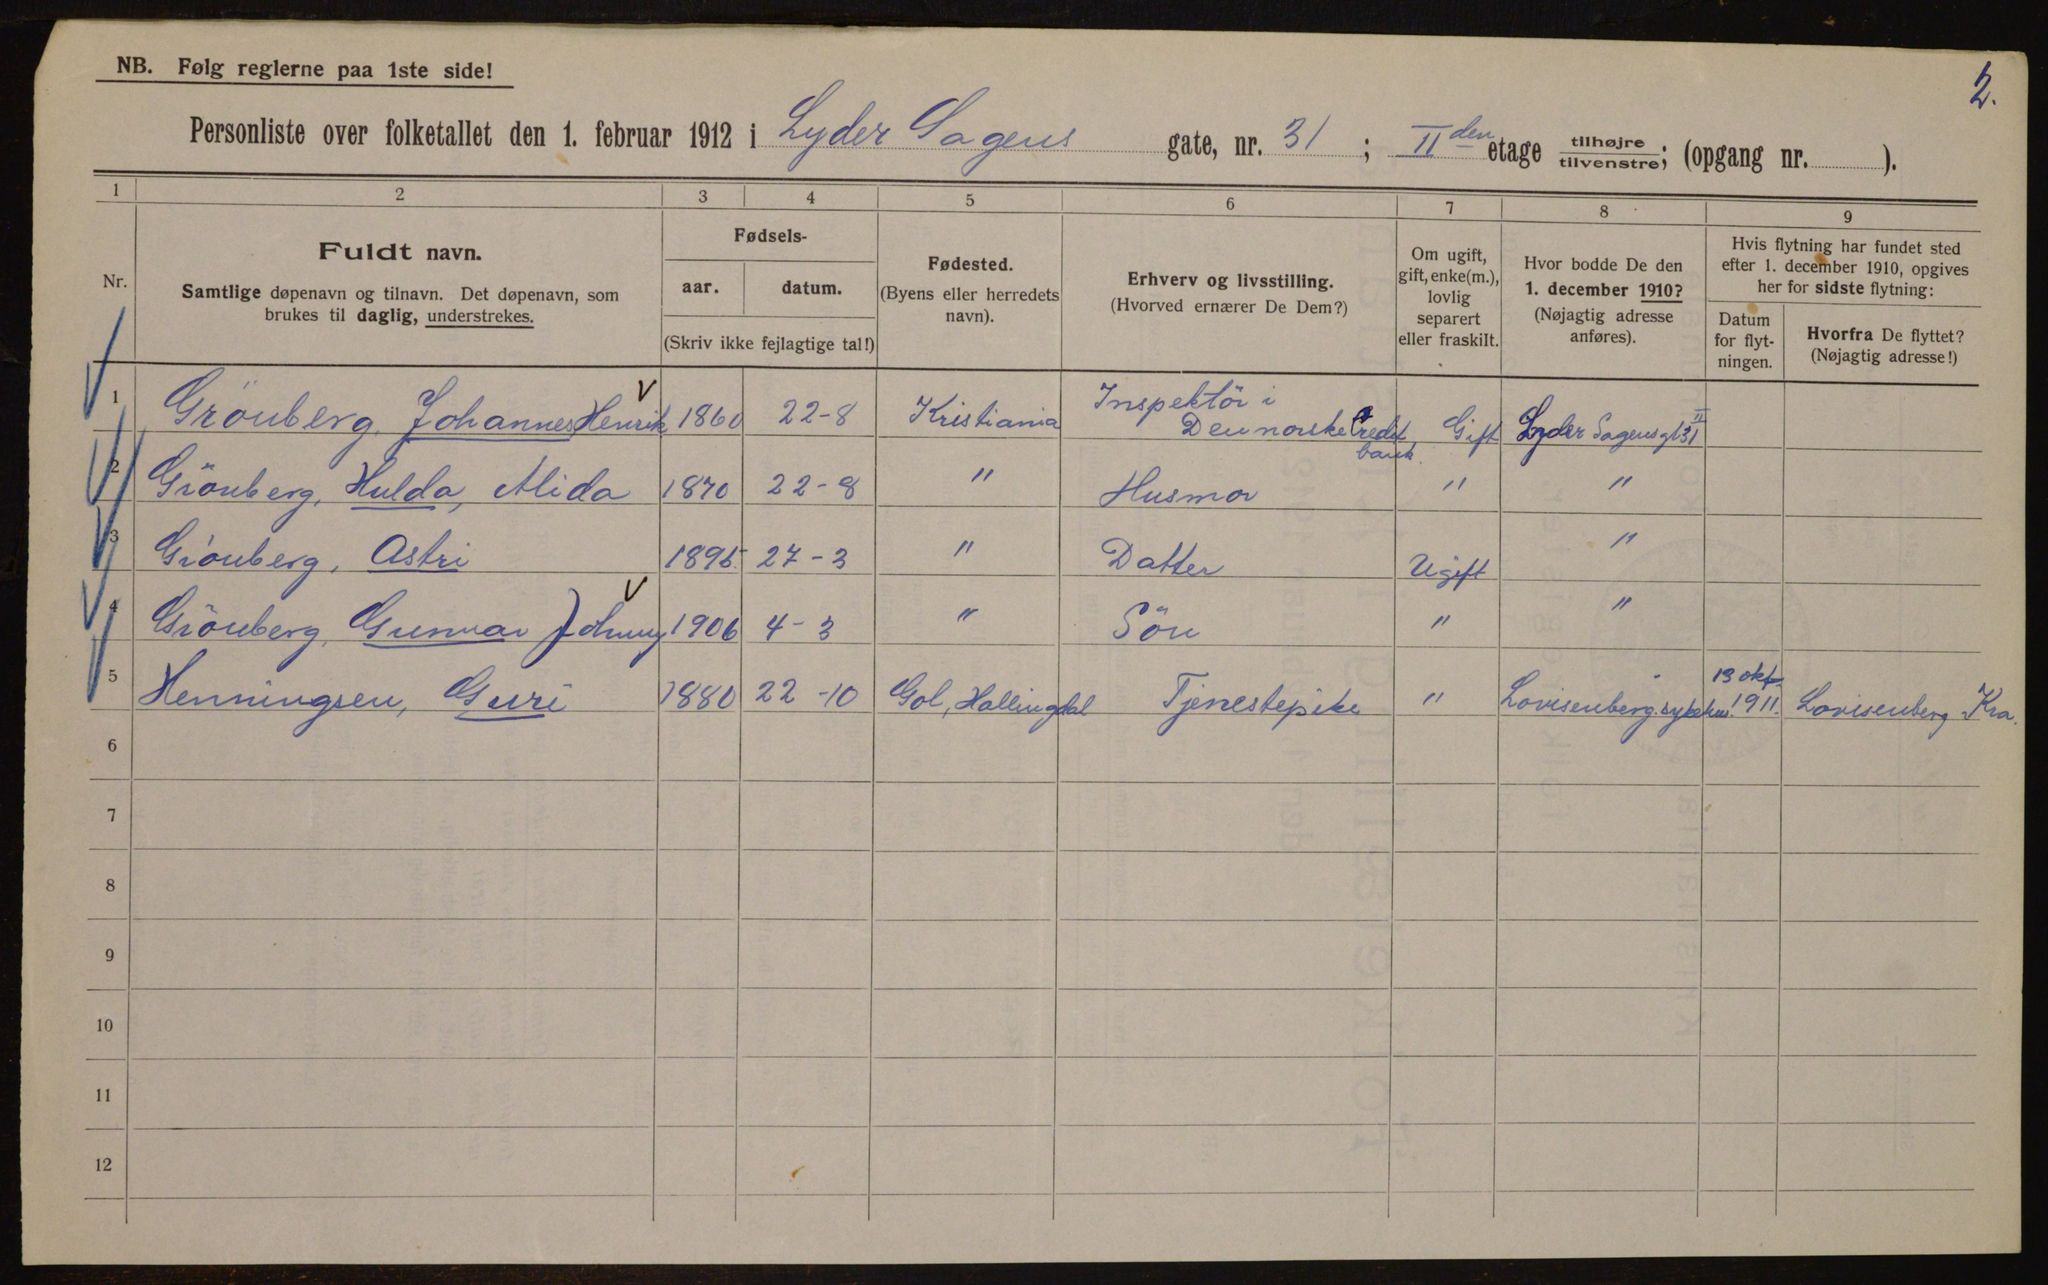 2.
NB. Følg reglerne paa 1ste side!
Personliste over folketallet den 1. februar 1912 i Lyder Sagens gate, nr. 31 ; II den etage tilhøjre tilvenstre; (opgang nr. ).
1 2 3 4 5 6 7 8 9
Nr.
Fuldt navn.
Samtlige døpenavn og tilnavn. Det døpenavn, som
brukes til daglig, understrekes.
Fødsels-
aar. datum.
(Skriv ikke fejlagtige tal!)
Fødested.
(Byens eller herredets
navn).
Erhverv og livsstilling.
(Hvorved ernærer De Dem?)
Om ugift,
gift, enke(m.),
lovlig
separert
eller fraskilt.
Hvor bodde De den
1. december 1910?
(Nøjagtig adresse
anføres).
Hvis flytning har fundet sted
efter 1. december 1910, opgives
her for sidste flytning:
Datum
for flyt-
ningen.
Hvorfra De flyttet?
(Nøjagtig adresse!)
1 Grönberg, Johannes Henrik 1860 22-8 Kristiania Inspektör i Den norske Credit bank. Gift Lyder Sagensgt 31 II
2 Grönberg, Hulda, Alida 1870 22-8 " Husmor " "
3 Grönberg, Astri 1895 27-3 " Datter Ugift "
4 Grönberg, Gunnar Johnny 1906 4-3 " Sön " "
5 Henningsen, Guri 1880 22-10 Gol, Hallingdal Tjenestepike " Lovisenberg sykehus 13 okt. 1911. Lovisenberg Kra.
6
7
8
9
10
11
12